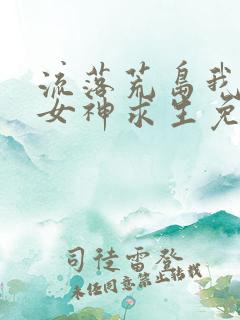 流落荒岛我
女神求生免
司徒雷登
未经同意禁止转载